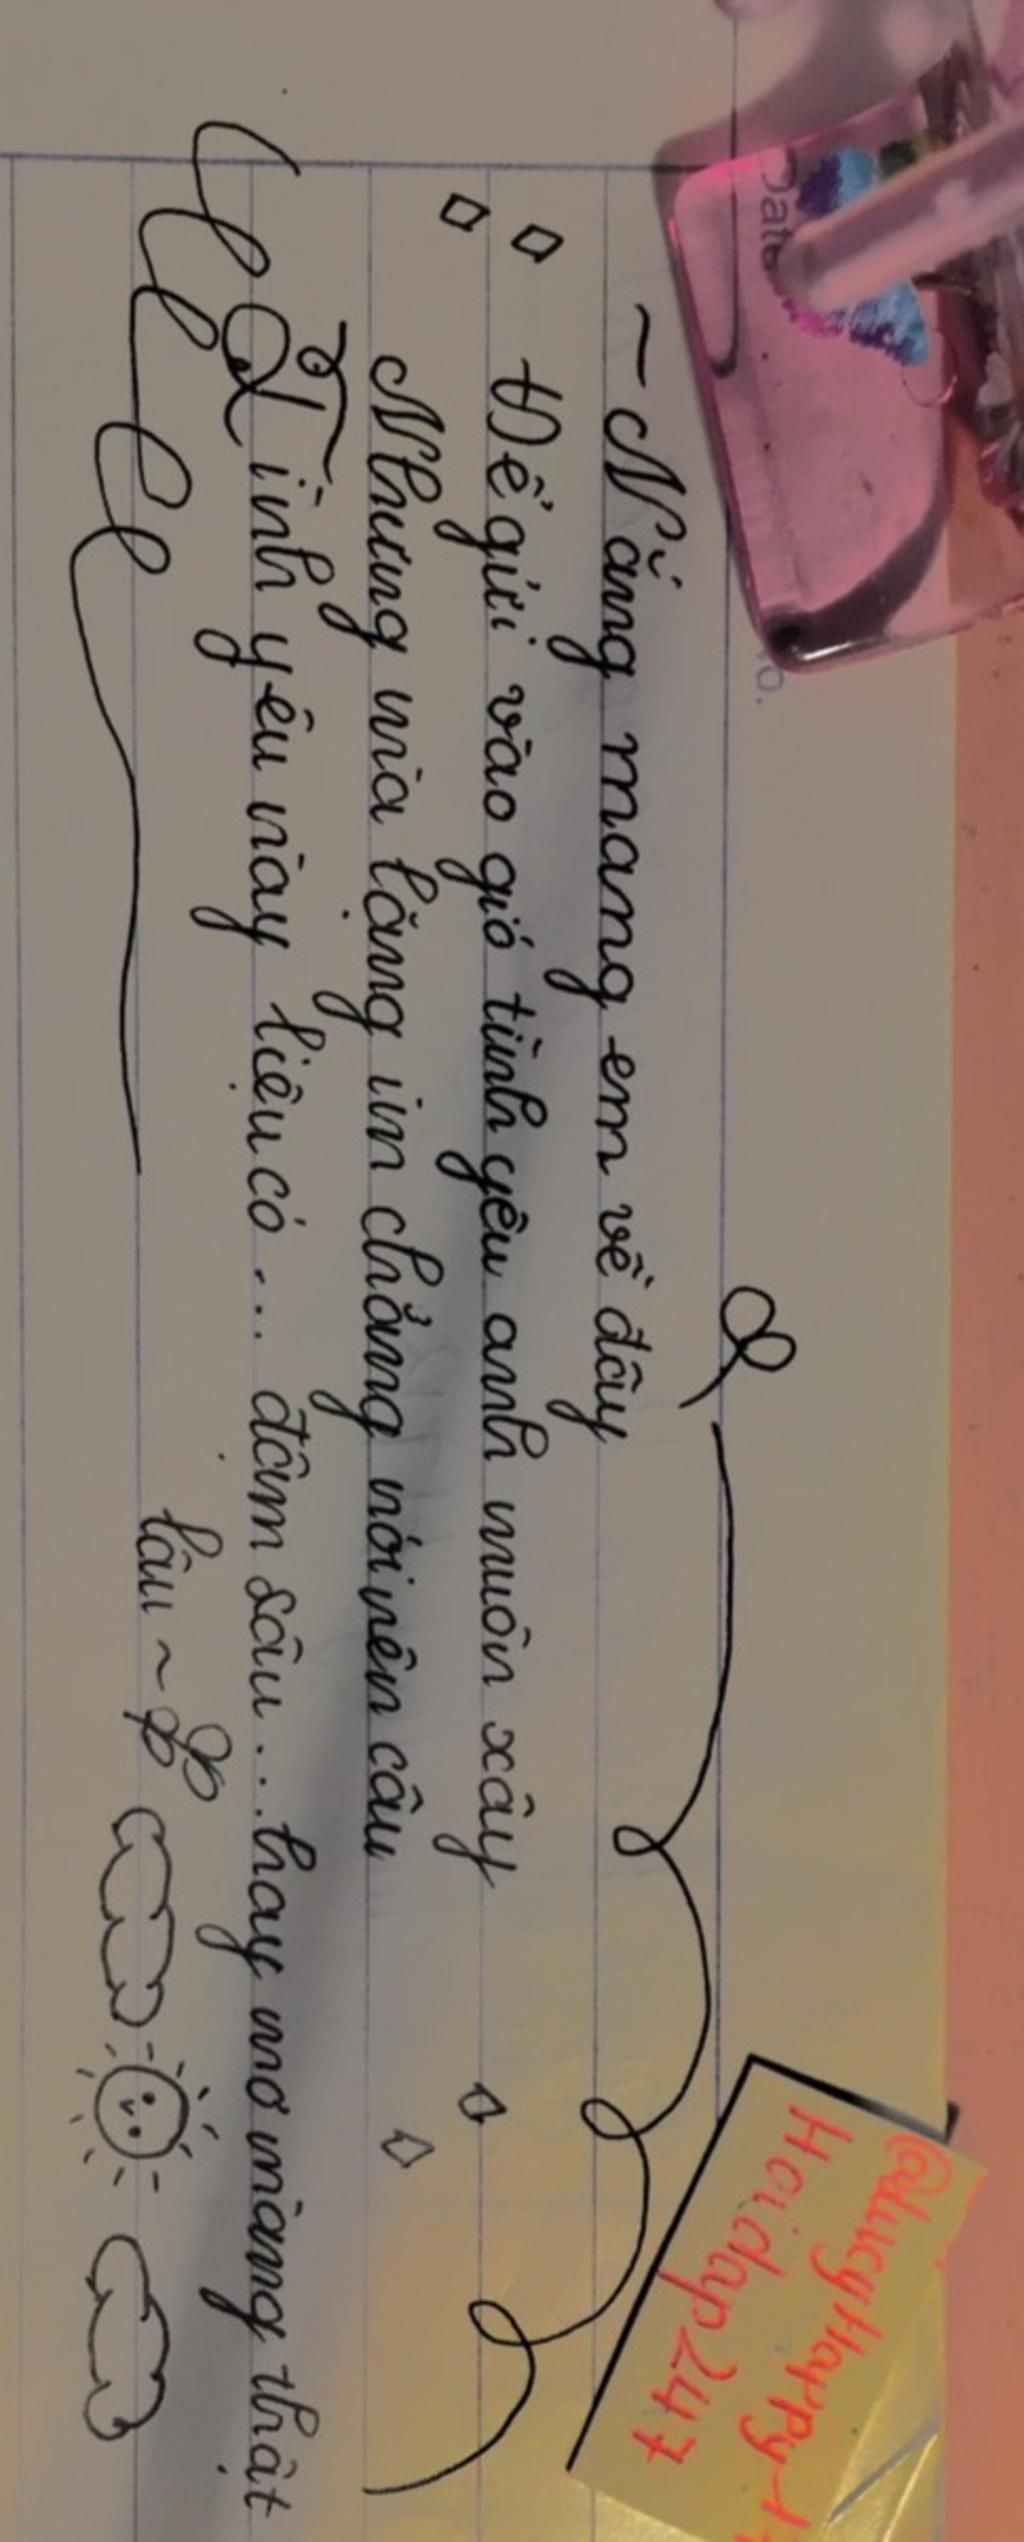 Date
No.
@LucyHappy
Hoidap247
~ Nắng mang em về đây
Để gửi vào gió tình yêu anh muốn xây
Nhưng mà lặng im chẳng nói nên câu
Tình yêu này liệu có... đậm sâu... hay mơ màng thật
lâu ~